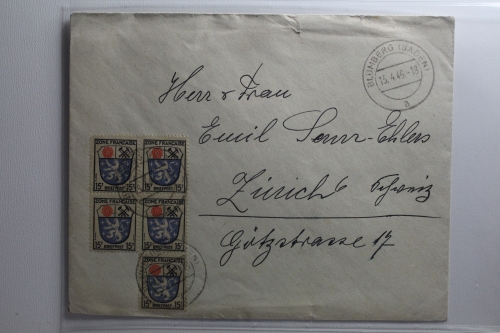 BLUMBERG (BADEN)
15.4.46.-18
a
Herr u Frau
Emil Surr-Ehlers
Zürich Schweiz
Götzstrasse 17
ZONE FRANÇAISE
15 BRIEFPOST 15
ZONE FRANÇAISE
15 BRIEFPOST 15
ZONE FRANÇAISE
15 BRIEFPOST 15
ZONE FRANÇAISE
15 BRIEFPOST 15
ZONE FRANÇAISE
15 BRIEFPOST 15